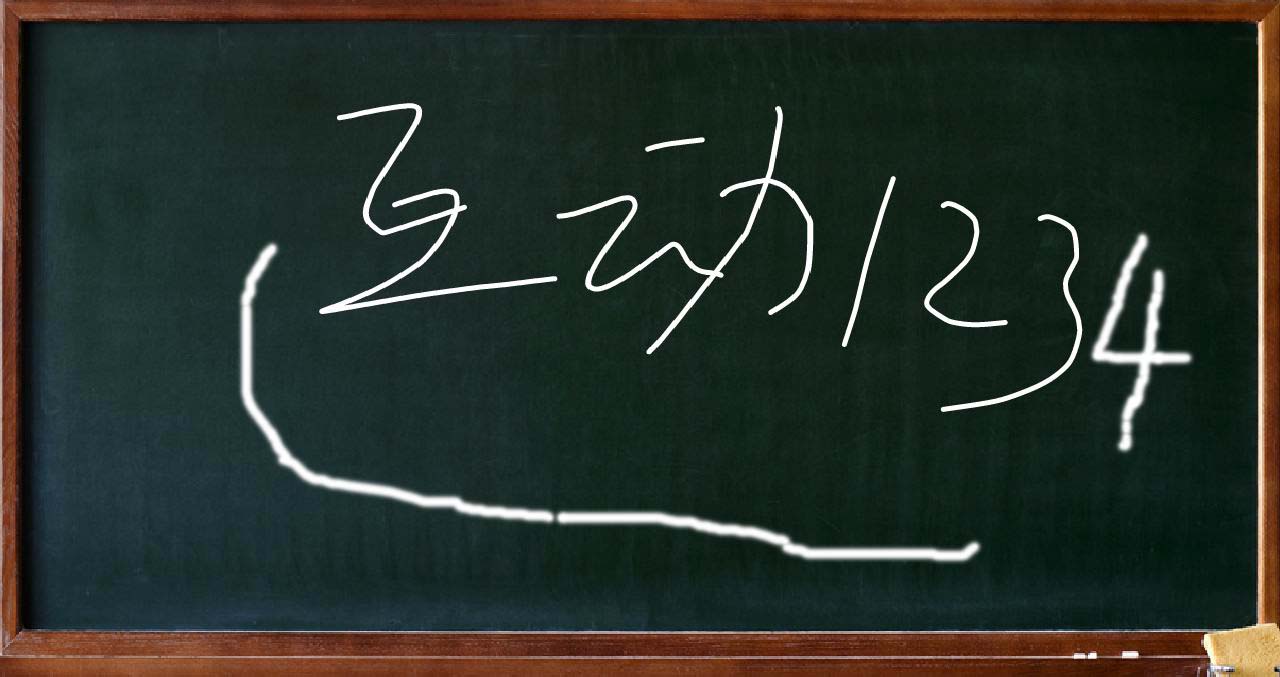 互动1234